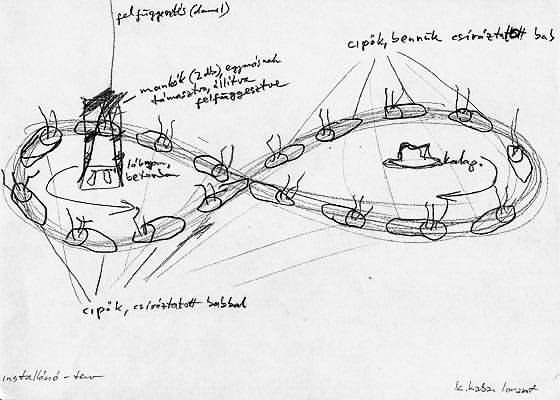 felfüggesztés (damil)
cipők, bennük csíráztatott bab
mankók (2 db), egymásnak
támasztva, állítva
felfüggesztve
lábnyom,
betonban
kalap.
cipők, csíráztatott babbal
installáció - terv
k. kabai lóránt